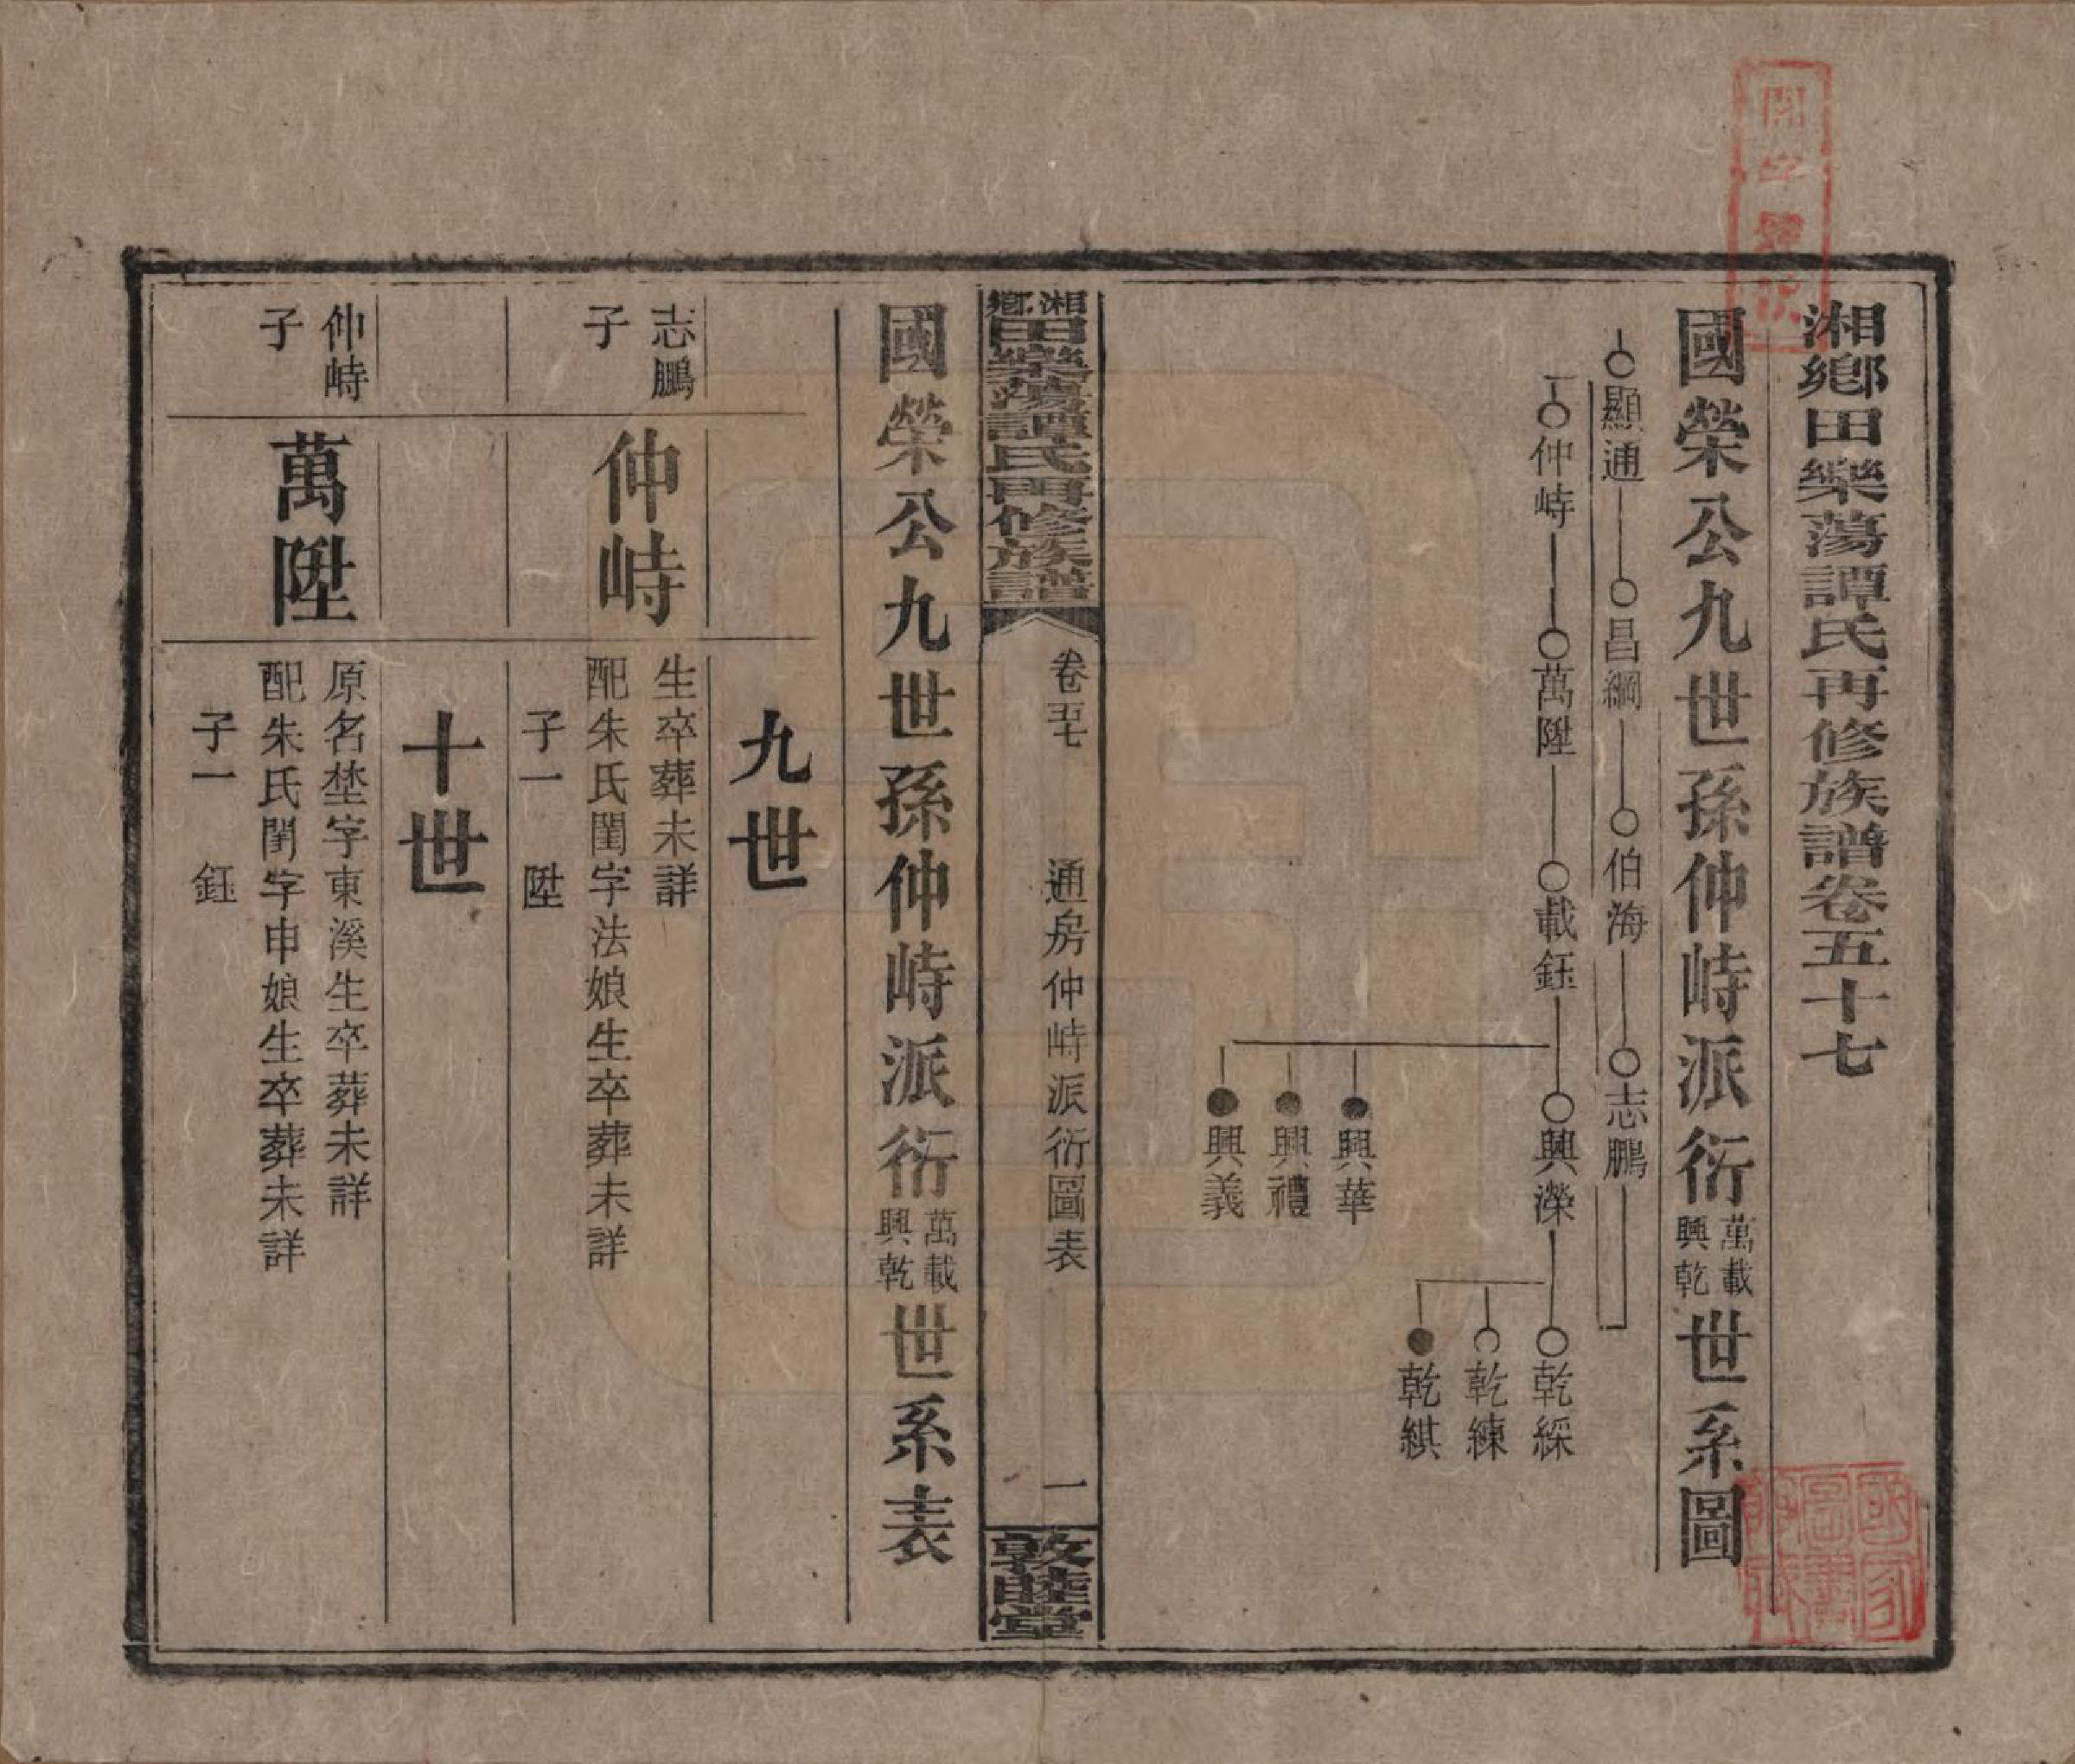 湘鄉田樂蕩譚氏再修族譜卷五十七
國榮公九世孫仲峙派衍萬載興乾世系圖
顯通
昌綱
伯海
志鵬
仲峙
萬陞
載鈺
興濚
興華
興禮
興義
乾綵
乾練
乾綨
湘鄉田樂蕩譚氏再修族譜
卷五七
通房仲峙派衍圖表
一
敦睦堂
國榮公九世孫仲峙派衍萬載興乾世系表
九世
志鵬
子
仲峙
生卒葬未詳
配朱氏閨字法娘生卒葬未詳
子一 陞
十世
仲峙
子
萬陞
原名埜字東溪生卒葬未詳
配朱氏閨字申娘生卒葬未詳
子一 鈺